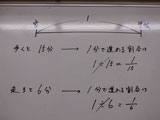 1
歩くと 15分 → 1分で進める割合は
1÷15 = 1/15
走ると 6分 → 1分で進める割合は
1÷6 = 1/6